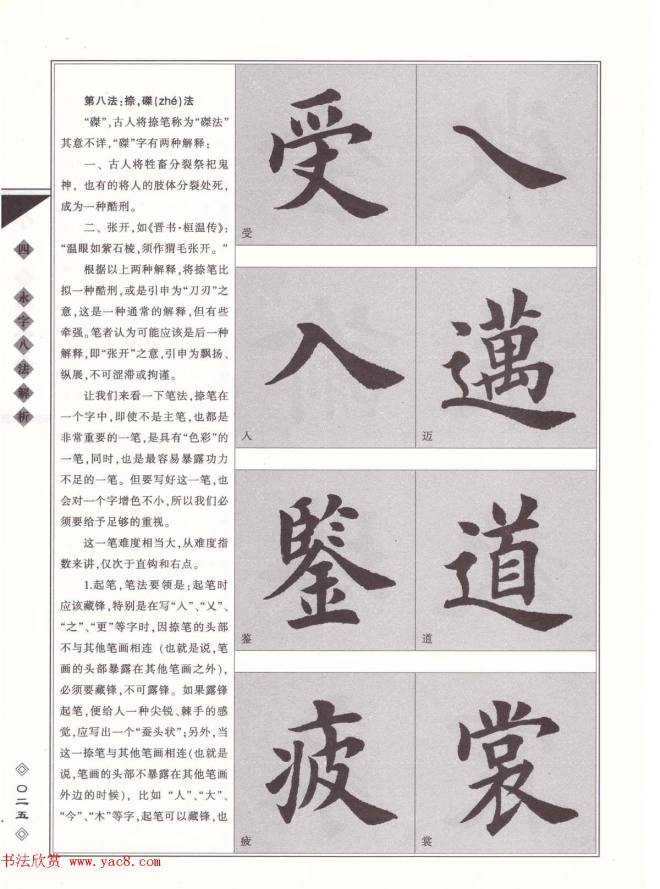 第八法:捺,磔(zhé)法
“磔”,古人将捺笔称为“磔法”
其意不详,“磔”字有两种解释:
一、古人将牲畜分裂祭祀鬼
神,也有的将人的肢体分裂处死,
成为一种酷刑。
二、张开,如《晋书·桓温传》:
“温眼如紫石棱,须作猬毛张开。”
根据以上两种解释,将捺笔比
拟一种酷刑,或是引申为“刀刃”之
意,这是一种通常的解释,但有些
牵强。笔者认为可能应该是后一种
解释,即“张开”之意,引申为飘扬、
纵展,不可涩滞或拘谨。
让我们来看一下笔法,捺笔在
一个字中,即使不是主笔,也都是
非常重要的一笔,是具有“色彩”的
一笔,同时,也是最容易暴露功力
不足的一笔。但要写好这一笔,也
会对一个字增色不小,所以我们必
须要给予足够的重视。
这一笔难度相当大,从难度指
数来讲,仅次于直钩和右点。
1.起笔,笔法要领是:起笔时
应该藏锋,特别是在写“人”、“乂”、
“之”、“更”等字时,因捺笔的头部
不与其他笔画相连(也就是说,笔
画的头部暴露在其他笔画之外),
必须要藏锋,不可露锋。如果露锋
起笔,便给人一种尖锐、棘手的感
觉,应写出一个“蚕头状”;另外,当
这一捺笔与其他笔画相连(也就是
说,笔画的头部不暴露在其他笔画
外边的时候),比如“人”、“大”、
“今”、“木”等字,起笔可以藏锋,也
受
受
入
人
邁
迈
鑒
鉴
道
道
疲
疲
裳
裳
四 永字八法解析
〇二五
书法欣赏 www.yac8.com